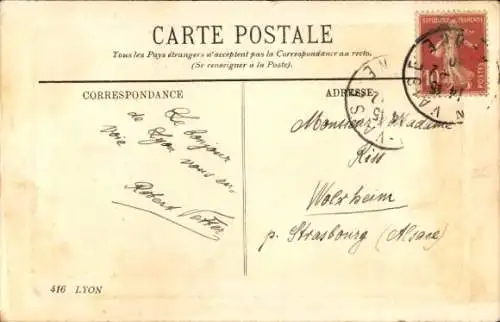 CARTE POSTALE
Tous les Pays étrangers n'acceptent pas la Correspondance au recto.
(Se renseigner à la Poste).
REPUBLIQUE FRANÇAISE
10
POSTES
CORRESPONDANCE
ADRESSE
Le bonjour
de Lyon vous en-
voie
Robert
Monsieur & Madame
Kiss
Wolxheim
p. Strasbourg (Alsace)
416 LYON